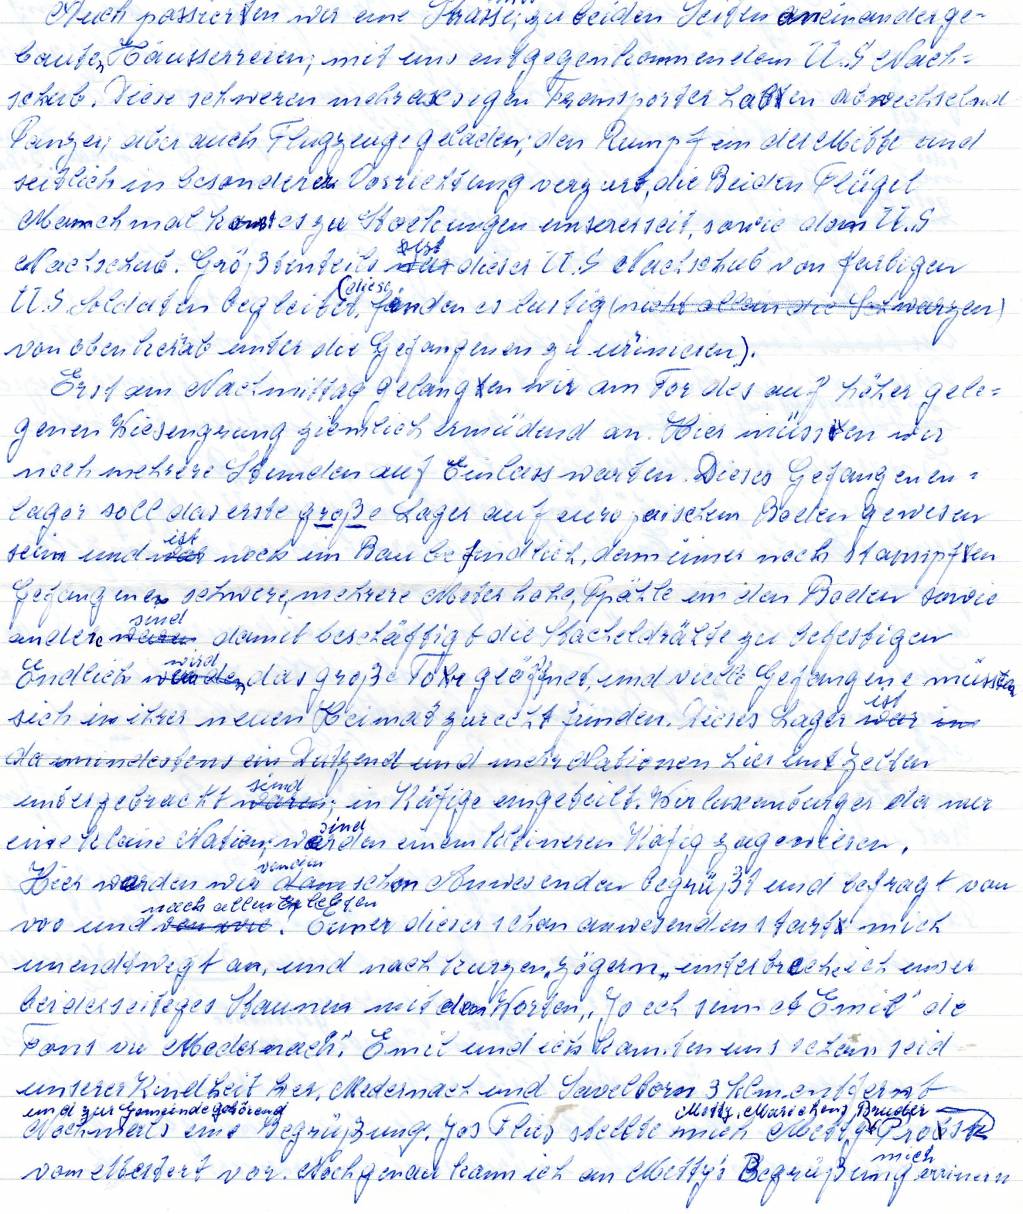 Auch passierten wir eine Strasse, zu beiden Seiten aneinanderge=
baute, Häusserreien; mit uns entgegenkommendem U.S Nach=
schub. Diese schweren mehraxsigen Transporter hatten abwechselnd
Panzer, aber auch Flugzeuge geladen; den Rumpf in der Mitte und
seitlich in besonderer Vorrichtung verzurt, die Beiden Flügel
Manchmal kamt es zu Stockungen unsererseit, sowie dem U.S
Nachschub. Größtenteils ist dieser U.S Nachschub von farbigen
U.S Soldaten begleitet, (diese finden es lustig (nicht allein die Schwarzen)
von oben herab unter die Gefangenen zu urinieren).
Erst am Nachmittag gelangten wir am Tor des auf höher gele=
genen Wiesengrung ziemlich ermüdend an. Hier müssten wir
noch mehrere Stunden auf Einlass warten. Dieses Gefangenen=
lager soll das erste große Lager auf europäischem Boden gewesen
sein und ist noch im Bau befindlich, denn immer noch stampften
Gefangene, schwere, mehrere Meter hohe, Pfähle in den Boden sowie
andere sind damit beschäftigt die Stacheldrähte zu befestigen
Endlich wird das große Tohr geöffnet, und viele Gefangene müssten
sich in ihrer neuen Heimat zurecht finden. Dieses Lager ist in
da mindestens ein Dutzend und mehr Nationen hier mit Zelten
untergebracht sind; in Käfige eingeteilt. Wir luxemburger da nur
eine kleine Nation; sind einem kleineren Käfig zugewiesen.
Hier werden wir von den schon Anwesenden begrüßt und befragt von
wo und nach allem erlebten. Einer dieser schon anwesenden starrt mich
unentwegt an, und nach kurzen, zögern, unterbreche ich unser
beiderseiteges Staunen mit den Worten, "Jo ech sinn et Emil" die
Fons vu Medernach". Emil und ich kannten uns schon seid
unserer Kindheit her, Medernach und Savelborn 3 klm. entfernt
und zur Gemeinde gehörend Metty, Marichens Bruder
Nochmals eine Begrüßung. Jos Flies stellte mich Metty Probst
vom Mestert vor. Noch genau kann ich an Metty's Begrüßung mich erinnern